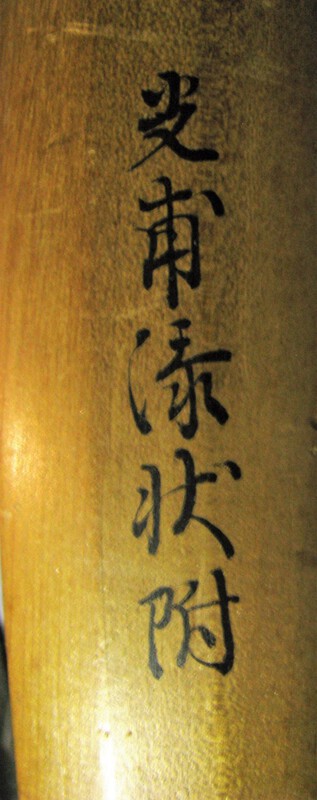 光甫添状附